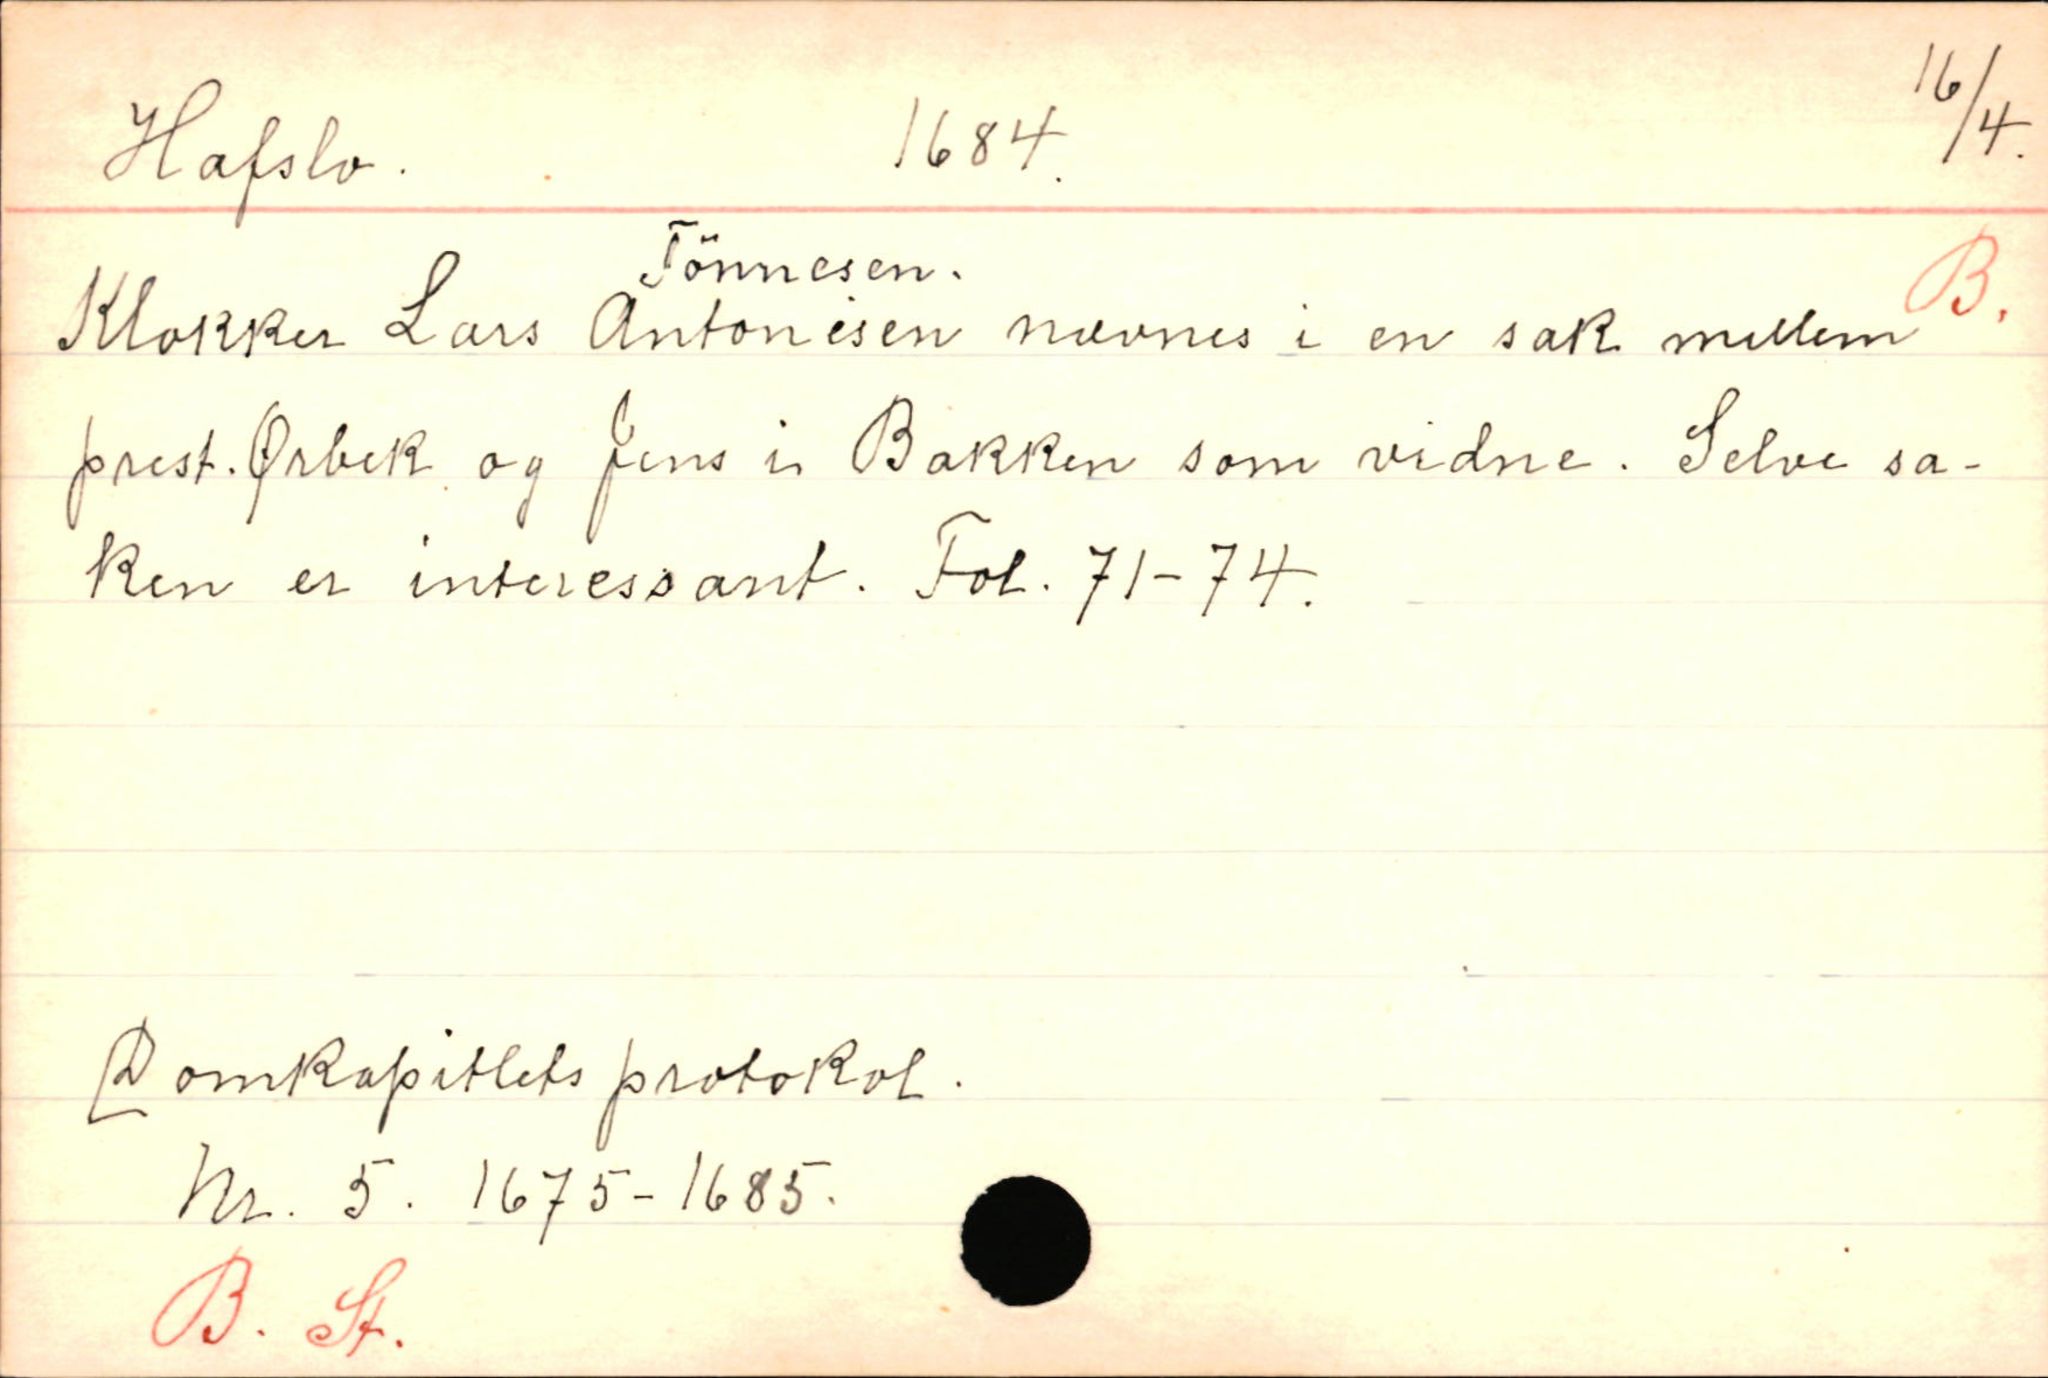 Hafslo. 1684. 16/4.
Tönnesen. B.
Klokker Lars Antonisen nævnes i en sak mellem
prest. Ørbek og Jens i Bakken som vidne. Selve sa-
ken er interessant. Fol. 71-74.
Domkapitlets protokol.
Nr. 5. 1675-1685.
B. St.